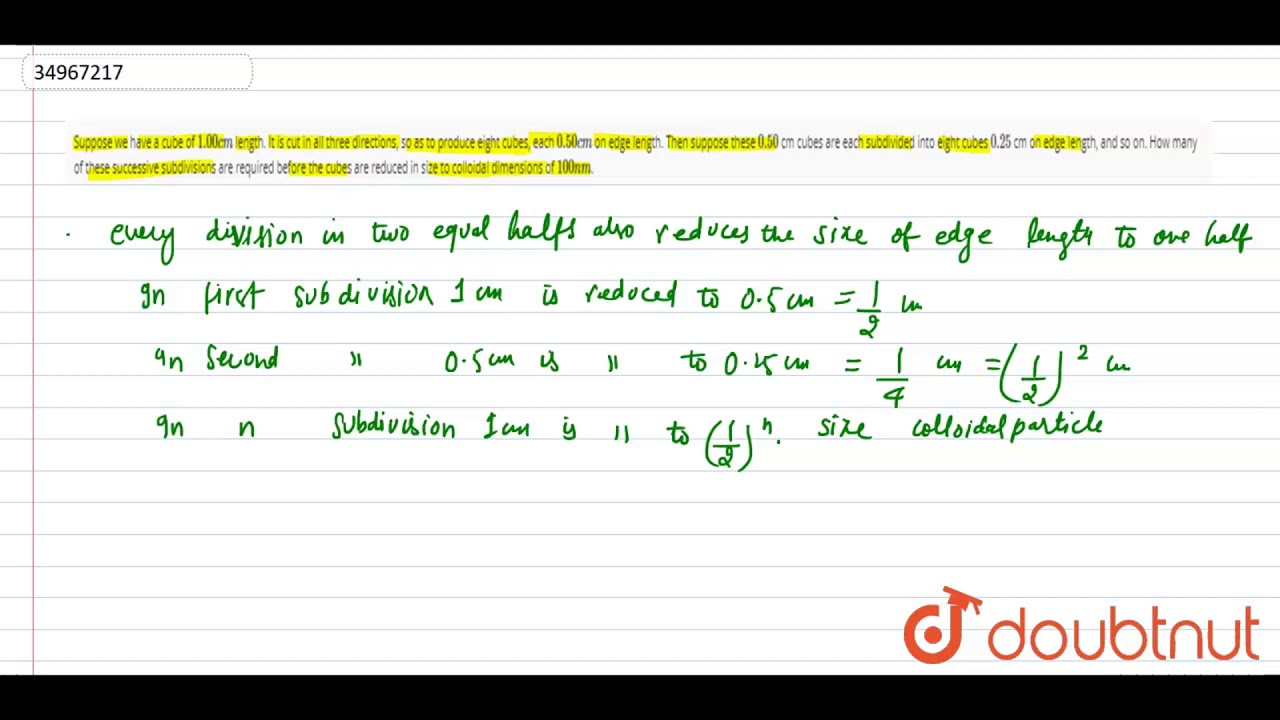 34967217
Suppose we have a cube of 1.00cm length. It is cut in all three directions, so as to produce eight cubes, each 0.50cm on edge length. Then suppose these 0.50 cm cubes are each subdivided into eight cubes 0.25 cm on edge length, and so on. How many
of these successive subdivisions are required before the cubes are reduced in size to colloidal dimensions of 100nm.
every division in two equal halfs also reduces the size of edge length to one half
In first subdivision 1 cm is reduced to 0.5 cm = 1/2 cm
In second " 0.5 cm is " to 0.25 cm = 1/4 cm = (1/2)^2 cm
In n subdivision 1 cm is " to (1/2)^n. size colloidal particle
doubtnut